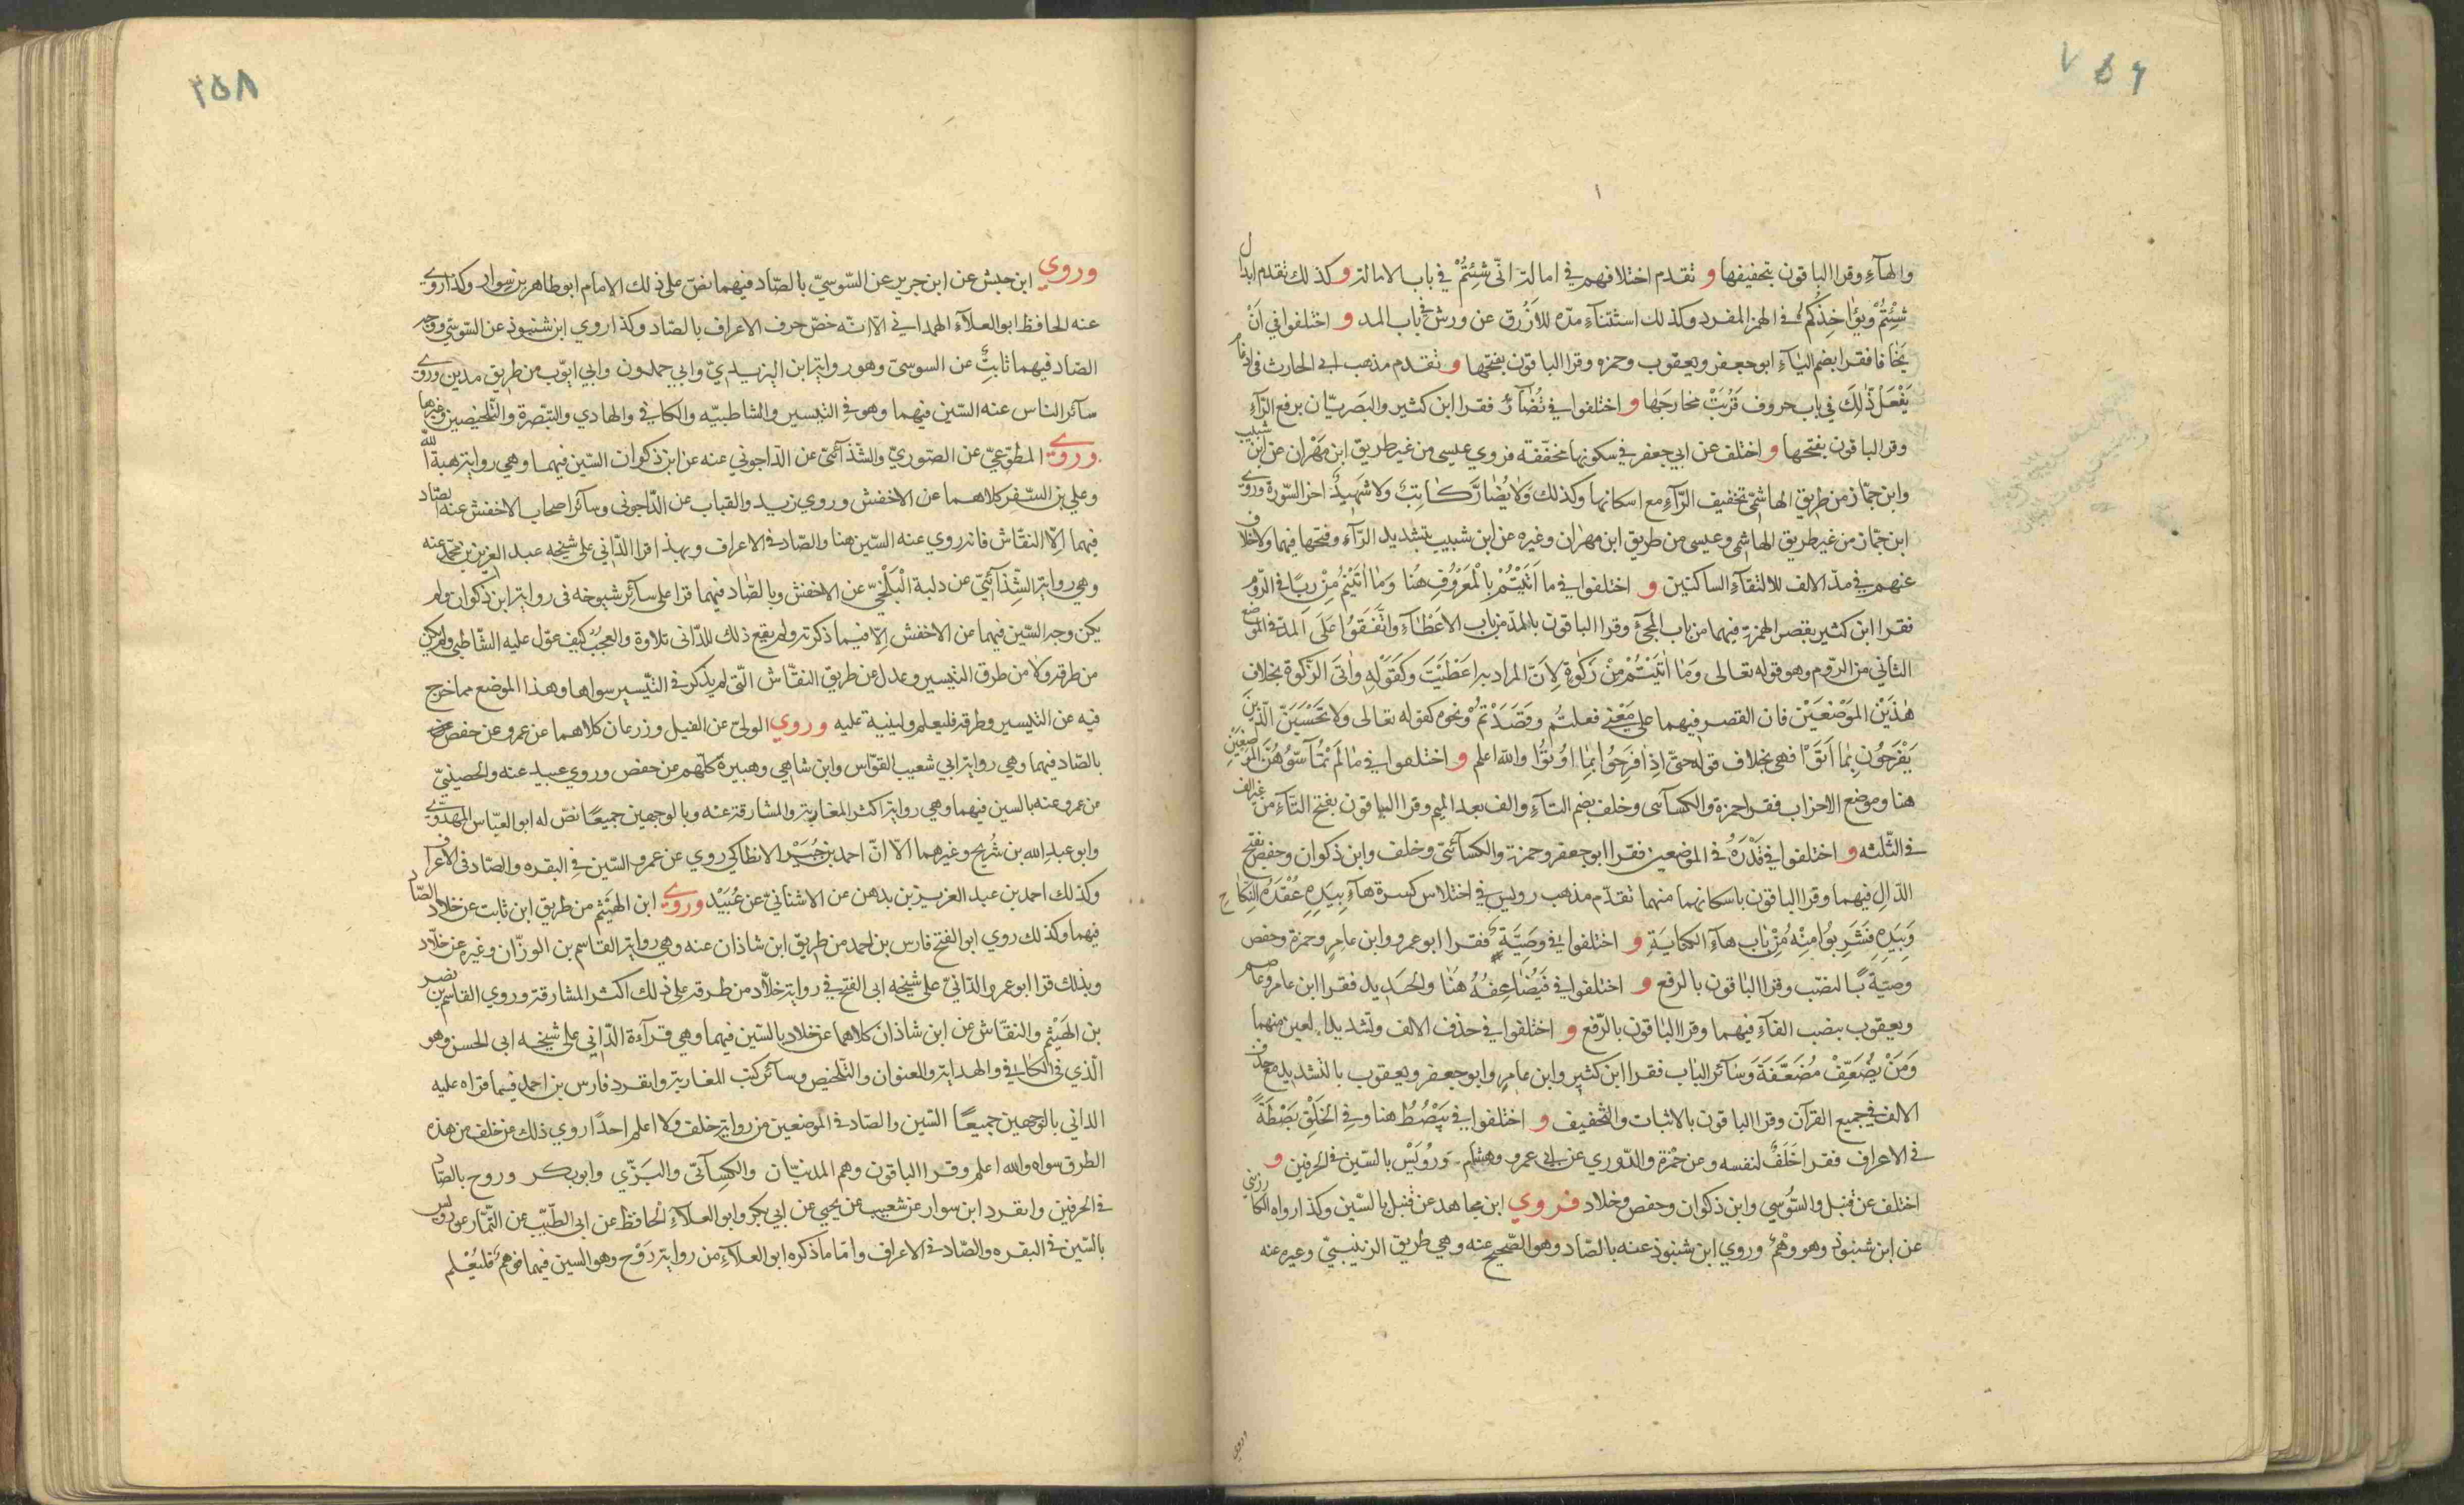 والهآء وقرا الباقون بتخفيفها و تقدم اختلافهم في امالة انّى شِئتُمْ في باب الامالة و كذلك تقدم ابدال
شِئتُمْ وَيُؤاخِذُكُمْ في الهمز المفرد وكذلك استثنآء مدّه للأزرق عن ورش في باب المد و اختلفوا في اَنْ
يَخٰافا فقرا بضم اليٰآء ابو جعفر ويعقوب وحمزه وقرا الباقون بفتحها و تقدم مذهب ابي الحارث في ادغام
يَفْعَلْ ذٰلِكَ في باب حروف قَرُبَتْ مخارجَها و اختلفوا في تُضٰآرّ فقرا ابن كثير والبَصريّان برفع الرّآء
وقرا الباقون بفتحها و اختلف عن ابي جعفر في سكونها مخفّفه فروي عيسى من غير طريق ابن مَهْران عن ابن شبيب
وابن جمّاز من طريق الهاشمّي تخفيف الرّآء مع اسكانها وكذلك وَلٰا يُضٰارَّ كٰاتِبٌ ولا شهيدٌ اخر السّورة وروي
ابن جمّاز من غير طريق الهاشمي وعيسى من طريق ابن مهران وغيره عن ابن شبيب بتشديد الرّآء وفتحها فيهما ولا خلاف
عنهم في مدّ الالف لالتقآء الساكنين و اختلفوا في ما اٰتَيْتُمْ بِالْمَعْرُوفِ هُنا وَمٰا اٰتَيْتُمْ مِنْ رِبًا في الرّوم
فقرا ابن كثير بقصر الهمزة فيهما من باب المجئ وقرا الباقون بالمدّ من باب الاعَطٰآء وَاتَّفَقُوا عَلَى المدّ في الموضع
الثاني من الرّوم وهو قوله تعالى وَمٰا اٰتَيْتُمْ مِنْ زَكٰوةٍ لِاَنّ المراد به اعَطَيْتَ وكَقَوْلِهِ وَاٰتَى الزّكوة بخلاف
هٰذَيْنِ المَوْضَعَيْن فان القصر فيهما على مَعْنٰى فعلتُم وقَصَدْتُم ونحوه كقوله تعالى ولا تَحْسَبَنّ الّذينَ
يَفْرَحُونَ بِمٰا اَتَوْا فهى بخلاف قوله حتّى اِذٰا فَرِحُوا بِمٰا اُوتُوا والله اعلم و اختلفوا في مٰا لَمْ تَمٰسّوُهُنّ الموضعين
هنا وموضع الاحزاب فقرا حمزة والكسآئى وخلف بضم التٰآء والف بعد الميم وقرا الباقون بفتح التٰآء من غير الف
في الثّلثه و اختلفوا في قَدَرُهُ في الموضعين فقرا ابو جعفر وحمزة والكسآئيّ وخلف وابن ذكوان وحفص بفتح
الدّال فيهما وقرا الباقون باسكانهما منهما تقدّم مذهب رويس في اختلاس كسرة هآء بِيَدِهِ عُقْدَةُ النِكٰاح
وَبِيَدِهِ فَشَرِبُوا مِنْهُ مِنْ بٰاب هآء الكنايَةِ و اختلفوا في وصِيَّةٍ فقرا ابو عمرو وابن عامر وحمزة وحفص
وصيّة بًالنصْب وقرا البٰاقون بالرفع و اختلفوا في فَيُضٰاعِفُهُ هُنٰا والحَديد فقرا ابن عامر وعاصم
ويعقوب بنصب الفآء فيهما وقرا البٰاقون بالرّفع و اختلفوا في حذف الالف وتشديد العين منهما
وَمَنْ يُضَعِّفْ مُضَعَّفَةً وَسٰآئر البٰاب فقرا ابن كثير وابن عامرٍ وابو جعفر ويعقوب بالتشديد مع حذف
الالف في جميع القرآن وقرا الباقون بالاثبات والتّخفيف و اختلفوا في يَبْصُطُ هنا وفي الخَلْقِ بَصْطَةً
في الاعراف فقرا خَلَفٌ لنفسه وعن حَمْزة والدّوري عن ابي عمرو وهشام وَرُوَيْسْ بالسّين في الحرفين و
اختلف عن قنبل والسُّوسي وابن ذكوان وحفص وخلاد فروي ابن مجاهد عن قنبل بالسّين وكذا رواه الكارزيني
عن ابن شنبوذ وهو وَهْمٌ وروي ابن شنبوذ عنه بالصّاد وهو الصّحيح عنه وهي طريق الزينبيّ وغيره عنه
وروي
وروي ابن حبش عن ابن جرير عن السّوسيّ بالصّاد فيهما نصّ على ذلك الامام ابو طاهر بن سوار وكذا روي
عنه الحافظ ابو العلآء الهمداني الّا انّه خصّ حرف الاعراف بالصّاد وكذا روي ابن شنبوذ عن السّوسيّ ووجه
الصّاد فيهما ثابتٌ عن السوسيّ وهو رواية ابن اليزيديّ وابي حمدون وابي ايّوب من طريق مدين وروي
سآئر الناس عنه السّين فيهما وهو في التيسير والشاطبيّه والكافي والهادي والتبّصرة والتّلخيصين وغيرها
وروي المطوّعيّ عن الصّوريّ والشّذآئيّ عن الدّاجوني عنه عن ابن ذكوان السّين فيهما وهي رواية هبة الله
وعلي بن السّفر كلاهما عن الاخفش وروي زيد والقباب عن الدّاجونى وسآئر اصحاب الاخفش عنه الصّاد
فيهما الّا النقّاش فانه روي عنه السّين هنا والصّاد في الاعراف وبهذا قرا الدّاني على شيخه عبد العزيز بن محمّد عنه
وهي رواية الشّذآئيّ عن دلبة الْبَلْخيّ عن الاخفش وبالصّاد فيهما قرا على سآئر شيوخه فى رواية ابن ذكوان ولم
يكن وجه السّين فيهما عن الاخفش الّا فيما ذكرته ولم يقع ذلك للدّانى تلاوة والعجبُ كيف عوّل عليه الشّاطبي ولم يكن
من طرقه ولا من طرق التيسير وعدل عن طريق النقّاش الّتى لم يذكر في التّيسير سواها وهذا الموضع مما خرج
فيه عن التيسير وطرقه فليعلم ولينبه عليه وروي الوليّ عن الفيل وزرعان كلاهما عن عمرو عن حفص
بالصّاد فيهما وهي رواية ابي شعيب القوّاس وابن شاهي وهبيرة كلّهم عن حفص وروي عبيد عنه والحصينيّ
عن عمرو عنه بالسين فيهما وهي رواية اكثر المغاربة والمشارقة عنه وبالوجهين جميعًا نصّ له ابو العبّاس المهدّوي
وابو عبد الله بن شُريح وغيرهما الّا انّ احمد بن جُبَيْر الانطاكي روي عن عمرو السّين في البقره والصّاد فى الاعراف
وكذلك احمد بن عبد العزيز بن بدهن عن الاشنانيّ عن عُبَيْد وروي ابن الهَيْثم من طريق ابن ثابت عن خلاد الصّاد
فيهما وكذلك روي ابو الفتح فارس بن احمد من طريق ابن شاذان عنه وهي رواية القاسم بن الوزّان وغيره عن خلّاد
وبذلك قرا ابو عمرو الدّانيّ على شيخه ابى الفتح في رواية خلّاد من طرقه على ذلك اكثر المشارقة وروي القاسم بن نصر
بن الهَيْثم والنقّاش عن ابن شاذان كلاهما عن خلاد بالسّين فيهما وهي قرآءة الدّاني على شيخه ابى الحسن وهو
الّذي فى الكٰافي والهداية والعنوان والتّلخيص وسآئر كتب المغاربة وانفرد فارس بن احمد فيما قراه عليه
الداني بالوجهين جميعًا السّين والصّاد في الموضعين من رواية خلف ولا اعلم احدًا روي ذلك عن خلف من هذه
الطرق سواه والله اعلم وقرا الباقون وهم المدنيّان والكِسآئىّ والبَزّي وابو بكر وروح بالصّاد
في الحرفين وانفرد ابن سوار عن شعيب عن يحيى عن ابي بكر وابو العلآء الْحافظ عن ابى الطّيّب عن التّمّار عن رويس
بالسّين في البقره والصّاد في الاعراف وامّا ما ذكره ابو العلآء من رواية رَوْح وهو السين فيهما فوهمٌ فليُعْلم